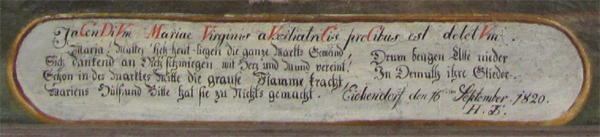 InCenDiVm Mariae Virginis aVXiliatriCis preCibus est deletVm.
Maria! Mutter! sich heut liegen die ganze Markts Gemeind
Sich dankend an Dich schmiegen mit Herz und Mund vereint!
Schon in des Marktes Mitte die grause Flamme kracht,
Mariens Hülf und Bitte hat sie zu Nichts gemacht.
Drum beugen Alle nieder
In Demuth ihre Glieder.
Eichendorf den 16ten September 1820.
H. B.